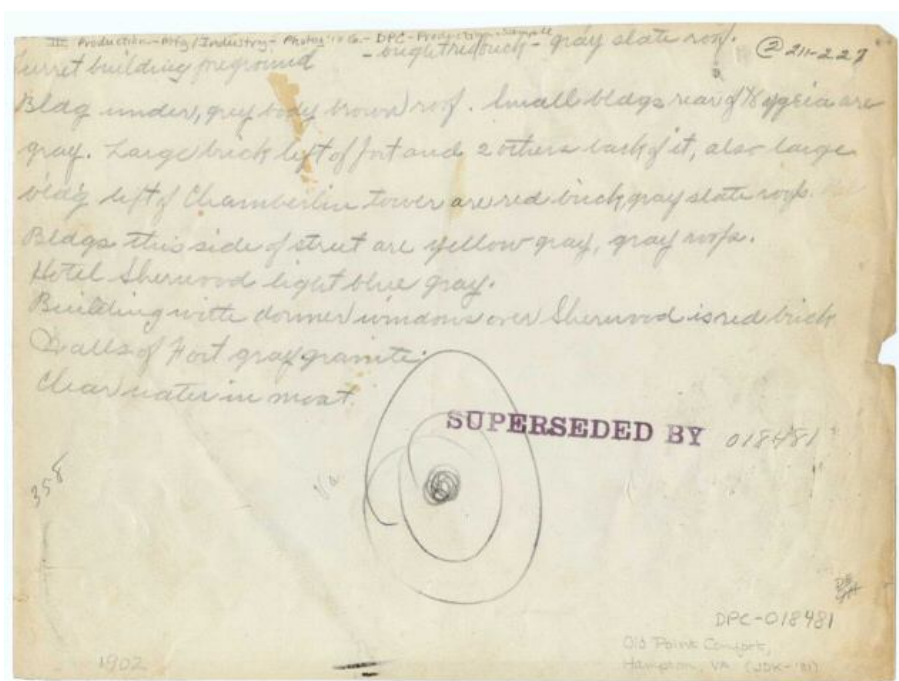 III Production-Mfg/Industry- Photog'ic Co.- DPC- Production- Sample
Turret building foreground - bright red brick - gray slate roof.
② 211-227
Bldg under, grey body brown roof. Small bldgs rear of Hygeia are
gray. Large brick left of fort and 2 others back of it, also large
bldg left of Chamberlin tower are red brick, gray slate roofs.
Bldgs this side of street are yellow gray, gray roofs.
Hotel Sherwood light blue gray.
Building with dormer windows over Sherwood is red brick
Walls of Fort gray granite.
Clear water in moat
SUPERSEDED BY 018481
358
Va.
DPC-018481
Old Point Comfort,
Hampton, VA (JDK-'81)
1902